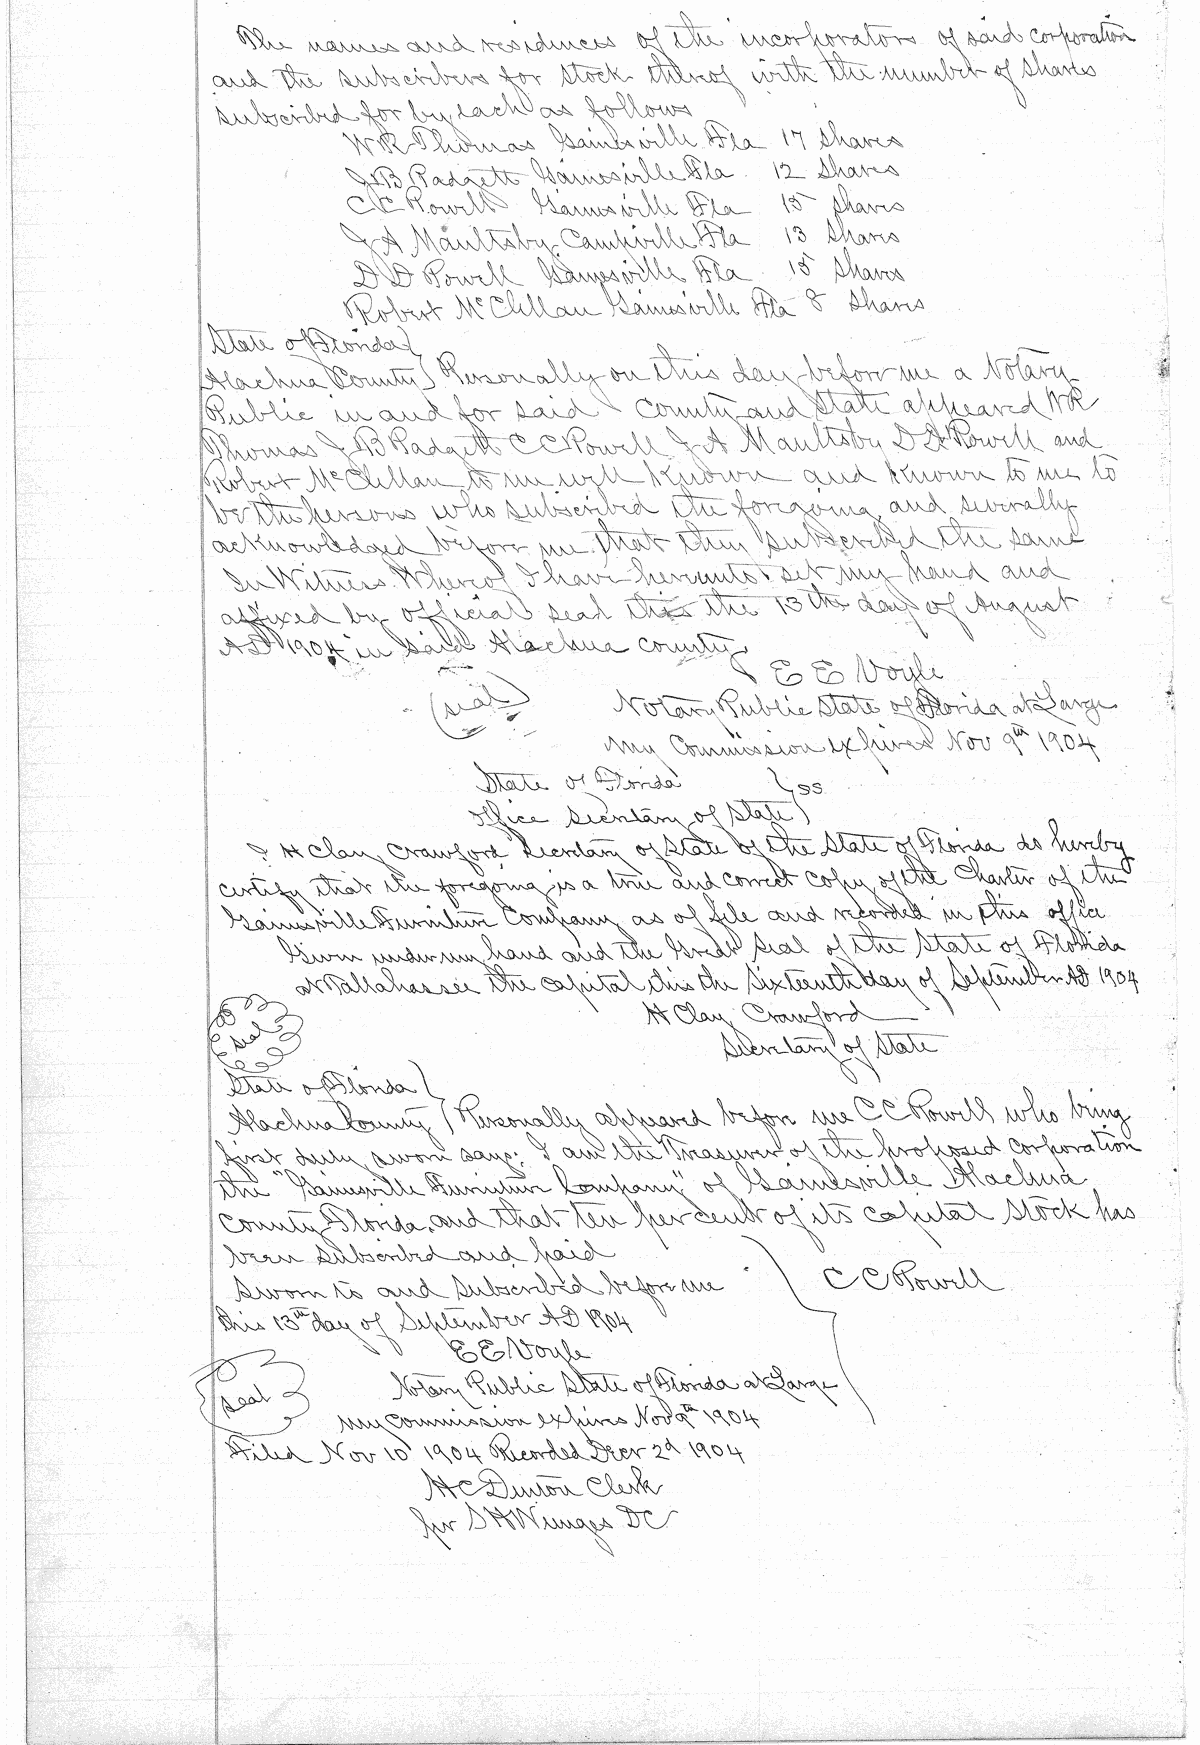 The names and residences of the incorporators of said corporation
and the subscribers for stock thereof with the number of shares
subscribed for by each as follows
W R Thomas Gainesville Fla 17 shares
J B Padgett Gainesville Fla 12 shares
C C Powell Gainesville Fla 15 shares
J A Maultsby Campville Fla 13 shares
D D Powell Gainesville Fla 15 shares
Robert McClellan Gainesville Fla 8 shares
State of Florida }
Alachua County } Personally on this day before me a Notary
Public in and for said County and State appeared W R
Thomas J B Padgett C C Powell J A Maultsby D D Powell and
Robert McClellan to me well known and known to me to
be the persons who subscribed the foregoing and severally
acknowledged before me that they subscribed the same
In Witness Whereof I have hereunto set my hand and
affixed by official seal this the 13th day of August
AD 1904 in said Alachua county
E E Voyle
(seal) Notary Public State of Florida at Large
My Commission expires Nov 9th 1904
State of Florida } ss
office Secretary of State }
I H Clay Crawford Secretary of State of the State of Florida do hereby
certify that the foregoing is a true and correct copy of the Charter of the
Gainesville Furniture Company as of file and recorded in this office
Given under my hand and the Great Seal of the State of Florida
at Tallahassee the capital this the Sixteenth day of September AD 1904
H Clay Crawford
seal
Secretary of State
State of Florida }
Alachua County } Personally appeared before me C C Powell who being
first duly sworn says: I am the Treasurer of the proposed corporation
the "Gainesville Furniture Company" of Gainesville Alachua
County Florida, and that ten per cent of its capital stock has
been subscribed and paid
Sworn to and subscribed before me } C C Powell
this 13th day of September AD 1904
E E Voyle
seal Notary Public State of Florida at Large
My commission expires Nov 9th 1904
Filed Nov 10 1904 Recorded Decr 2d 1904
H C Denton Clerk
per S H Wienges DC